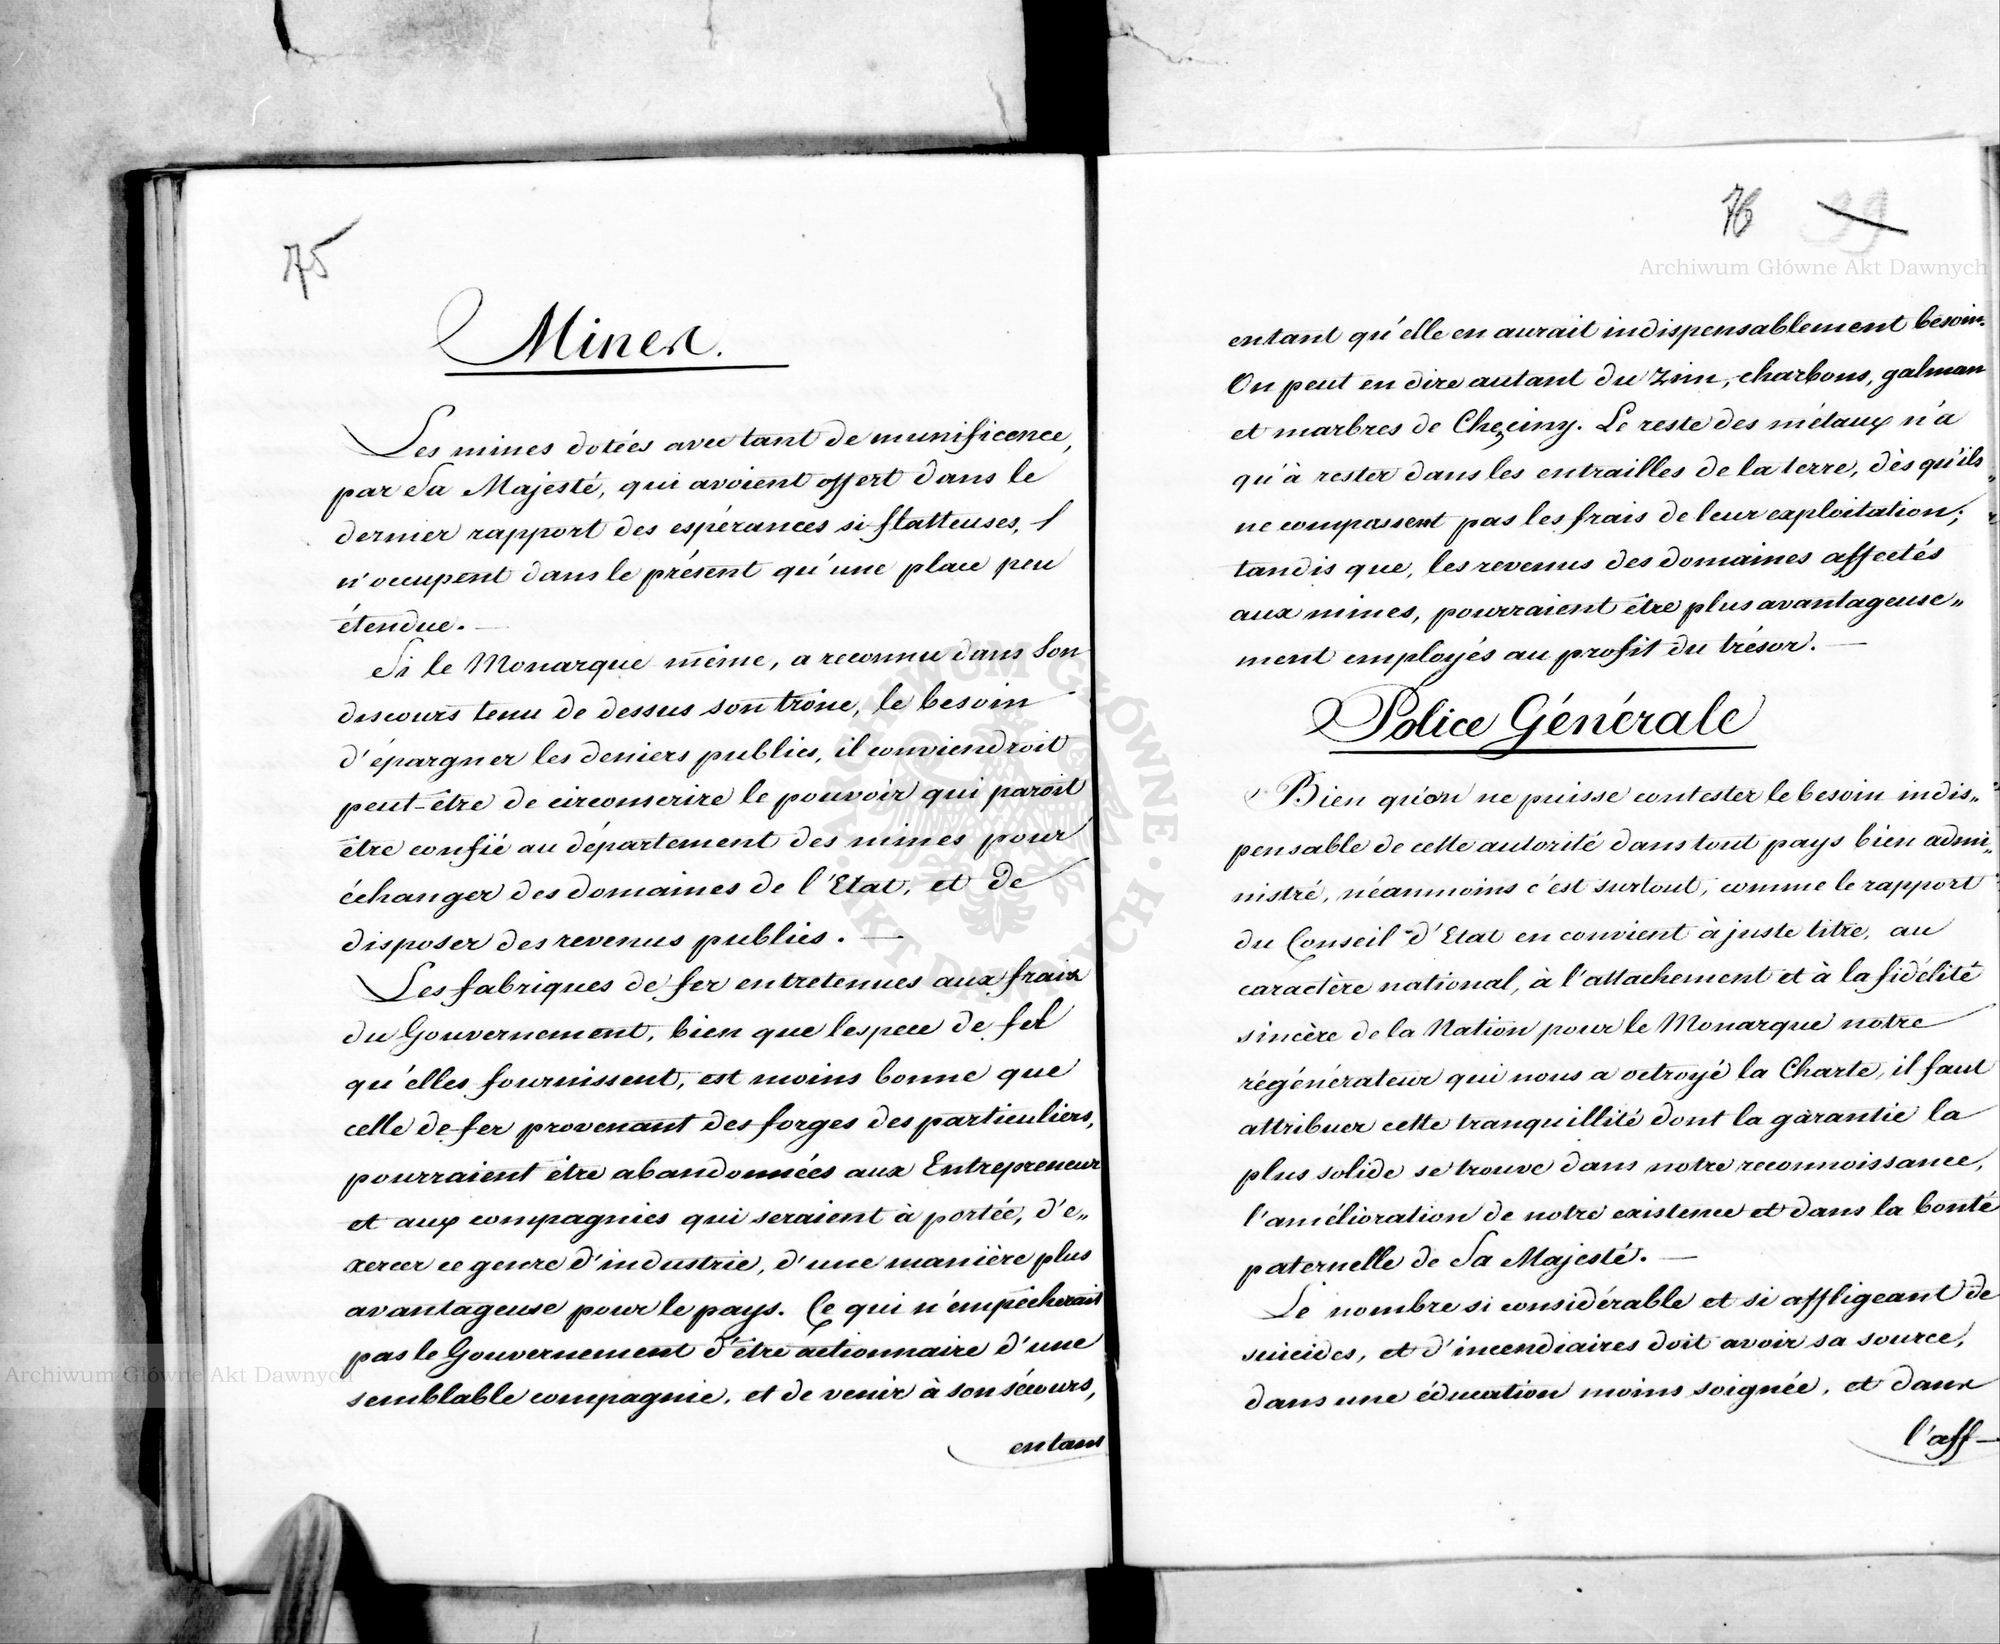 75
Mines.
Les mines dotées avec tant de munificence,
par Sa Majesté, qui avoient offert dans le
dernier rapport des espérances si flatteuses,
n'occupent dans le présent qu'une place peu
étendue. —
Si le Monarque même, a reconnu dans Son
discours tenu de dessus son trône, le besoin
d'épargner les deniers publics, il conviendroit
peut-être de circonscrire le pouvoir qui paroit
être confié au département des mines pour
échanger des domaines de l'Etat, et de
disposer des revenus publics. —
Les fabriques de fer entretenues aux frais
du Gouvernement, bien que l'espece de fer
qu'elles fournissent, est moins bonne que
celle de fer provenant des forges des particuliers,
pourraient être abandonnées aux Entrepreneur
et aux compagnies qui seraient à portée, d'e„
xercer ce genre d'industrie, d'une manière plus
avantageuse pour le pays. Ce qui n'empêcherait
pas le Gouvernement d'être actionnaire d'une
semblable compagnie, et de venir à son sécours,
entant
76 39
Archiwum Główne Akt Dawnych
entant qu'elle en aurait indispensablement besoin.
On peut en dire autant du Zinn, charbons, galman
et marbres de Chęciny. Le reste des métaux n'a
qu'à rester dans les entrailles de la terre, dès qu'ils
ne compassent pas les frais de leur exploitation;
tandis que, les revenus des domaines affectés
aux mines, pourraient être plus avantageuse„
ment employés au profit du trésor. —
Police Générale
Bien qu'on ne puisse contester le besoin indis„
pensable de cette autorité dans tout pays bien admi„
nistré, néanmoins c'est surtout, comme le rapport
du Conseil d'Etat en convient à juste titre, au
caractère national, à l'attachement et à la fidélité
sincère de la Nation pour le Monarque notre
régénérateur qui nous a octroyé la Charte, il faut
attribuer cette tranquillité dont la garantie la
plus solide se trouve dans notre reconnoissance,
l'amélioration de notre existence et dans la bonté
paternelle de Sa Majesté. —
Le nombre si considérable et si affligeant de
suicides, et d'incendiaires doit avoir sa source,
dans une éducation moins soignée, et dans
l'aff—
Archiwum Główne Akt Dawnych